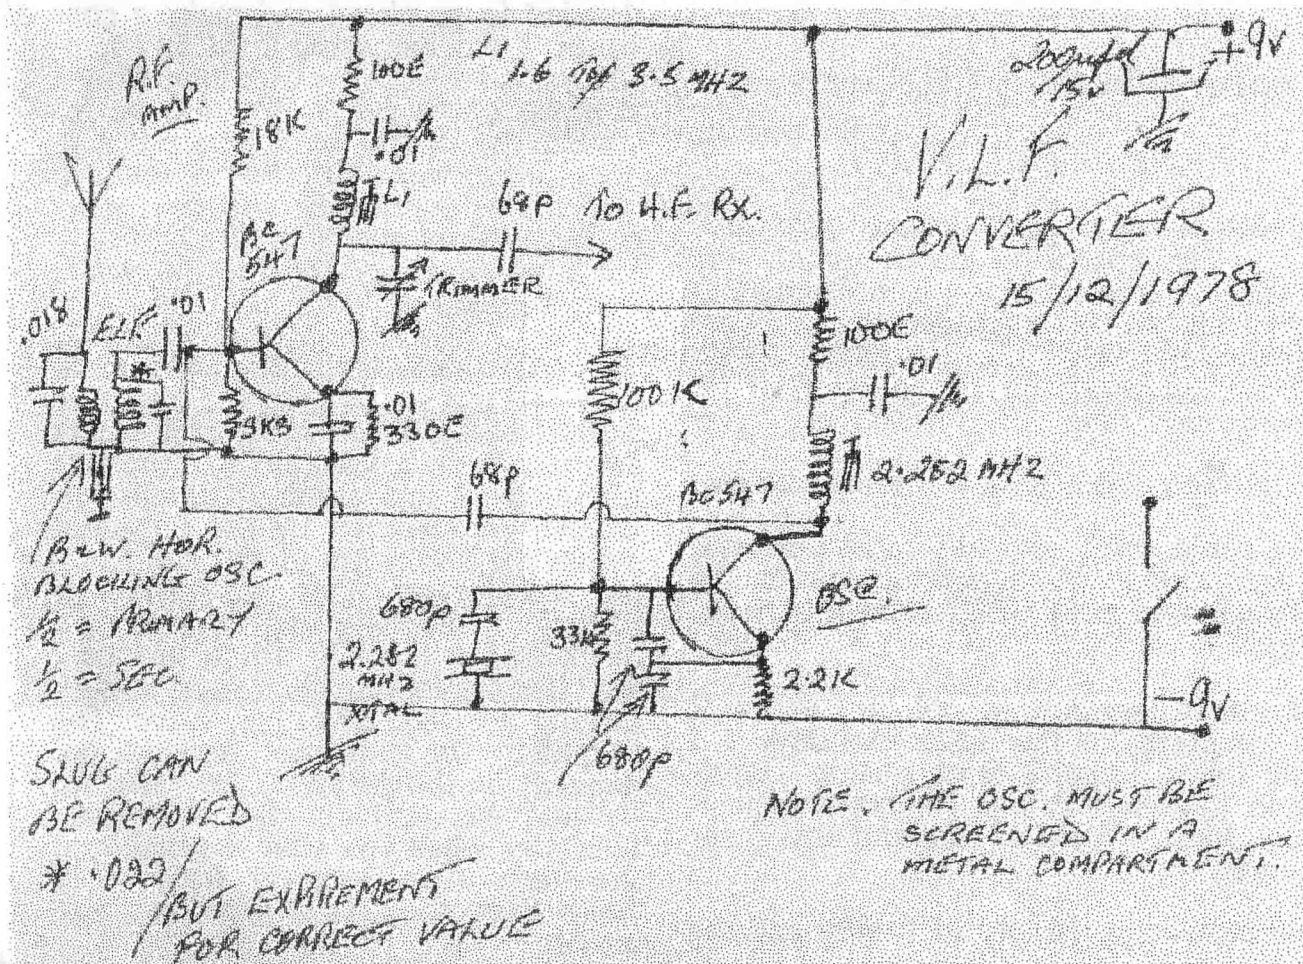 R.F.
AMP.
18K
100E
L1
1.6 TO 3.5 MHZ
200µfd
15v
+9v
.01
L1
68P TO H.F. RX.
V.L.F.
CONVERTER
15/12/1978
BC
547
TRIMMER
.018
ELF
.01
*
100E
.01
100K
3K3
.01
330E
68P
BC547
2.282 MHZ
B&W. HOR.
BLOCKING OSC.
1/2 = PRIMARY
1/2 = SEC.
680p
2.282
MHZ
XTAL
33K
OSC.
2.2K
680p
-9v
SLUG CAN
BE REMOVED
* .022
BUT EXPIREMENT
FOR CORRECT VALUE
NOTE. THE OSC. MUST BE
SCREENED IN A
METAL COMPARTMENT.